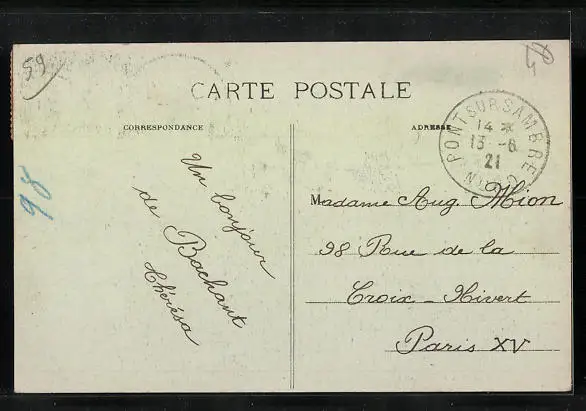 59
CARTE POSTALE
CORRESPONDANCE
ADRESSE
PONT SUR SAMBRE
14 *
13 - 8
21
98
Un bonjour
de Bachant
Thérésa
Madame Aug. Mion
98 Rue de la
Croix - Nivert
Paris XV